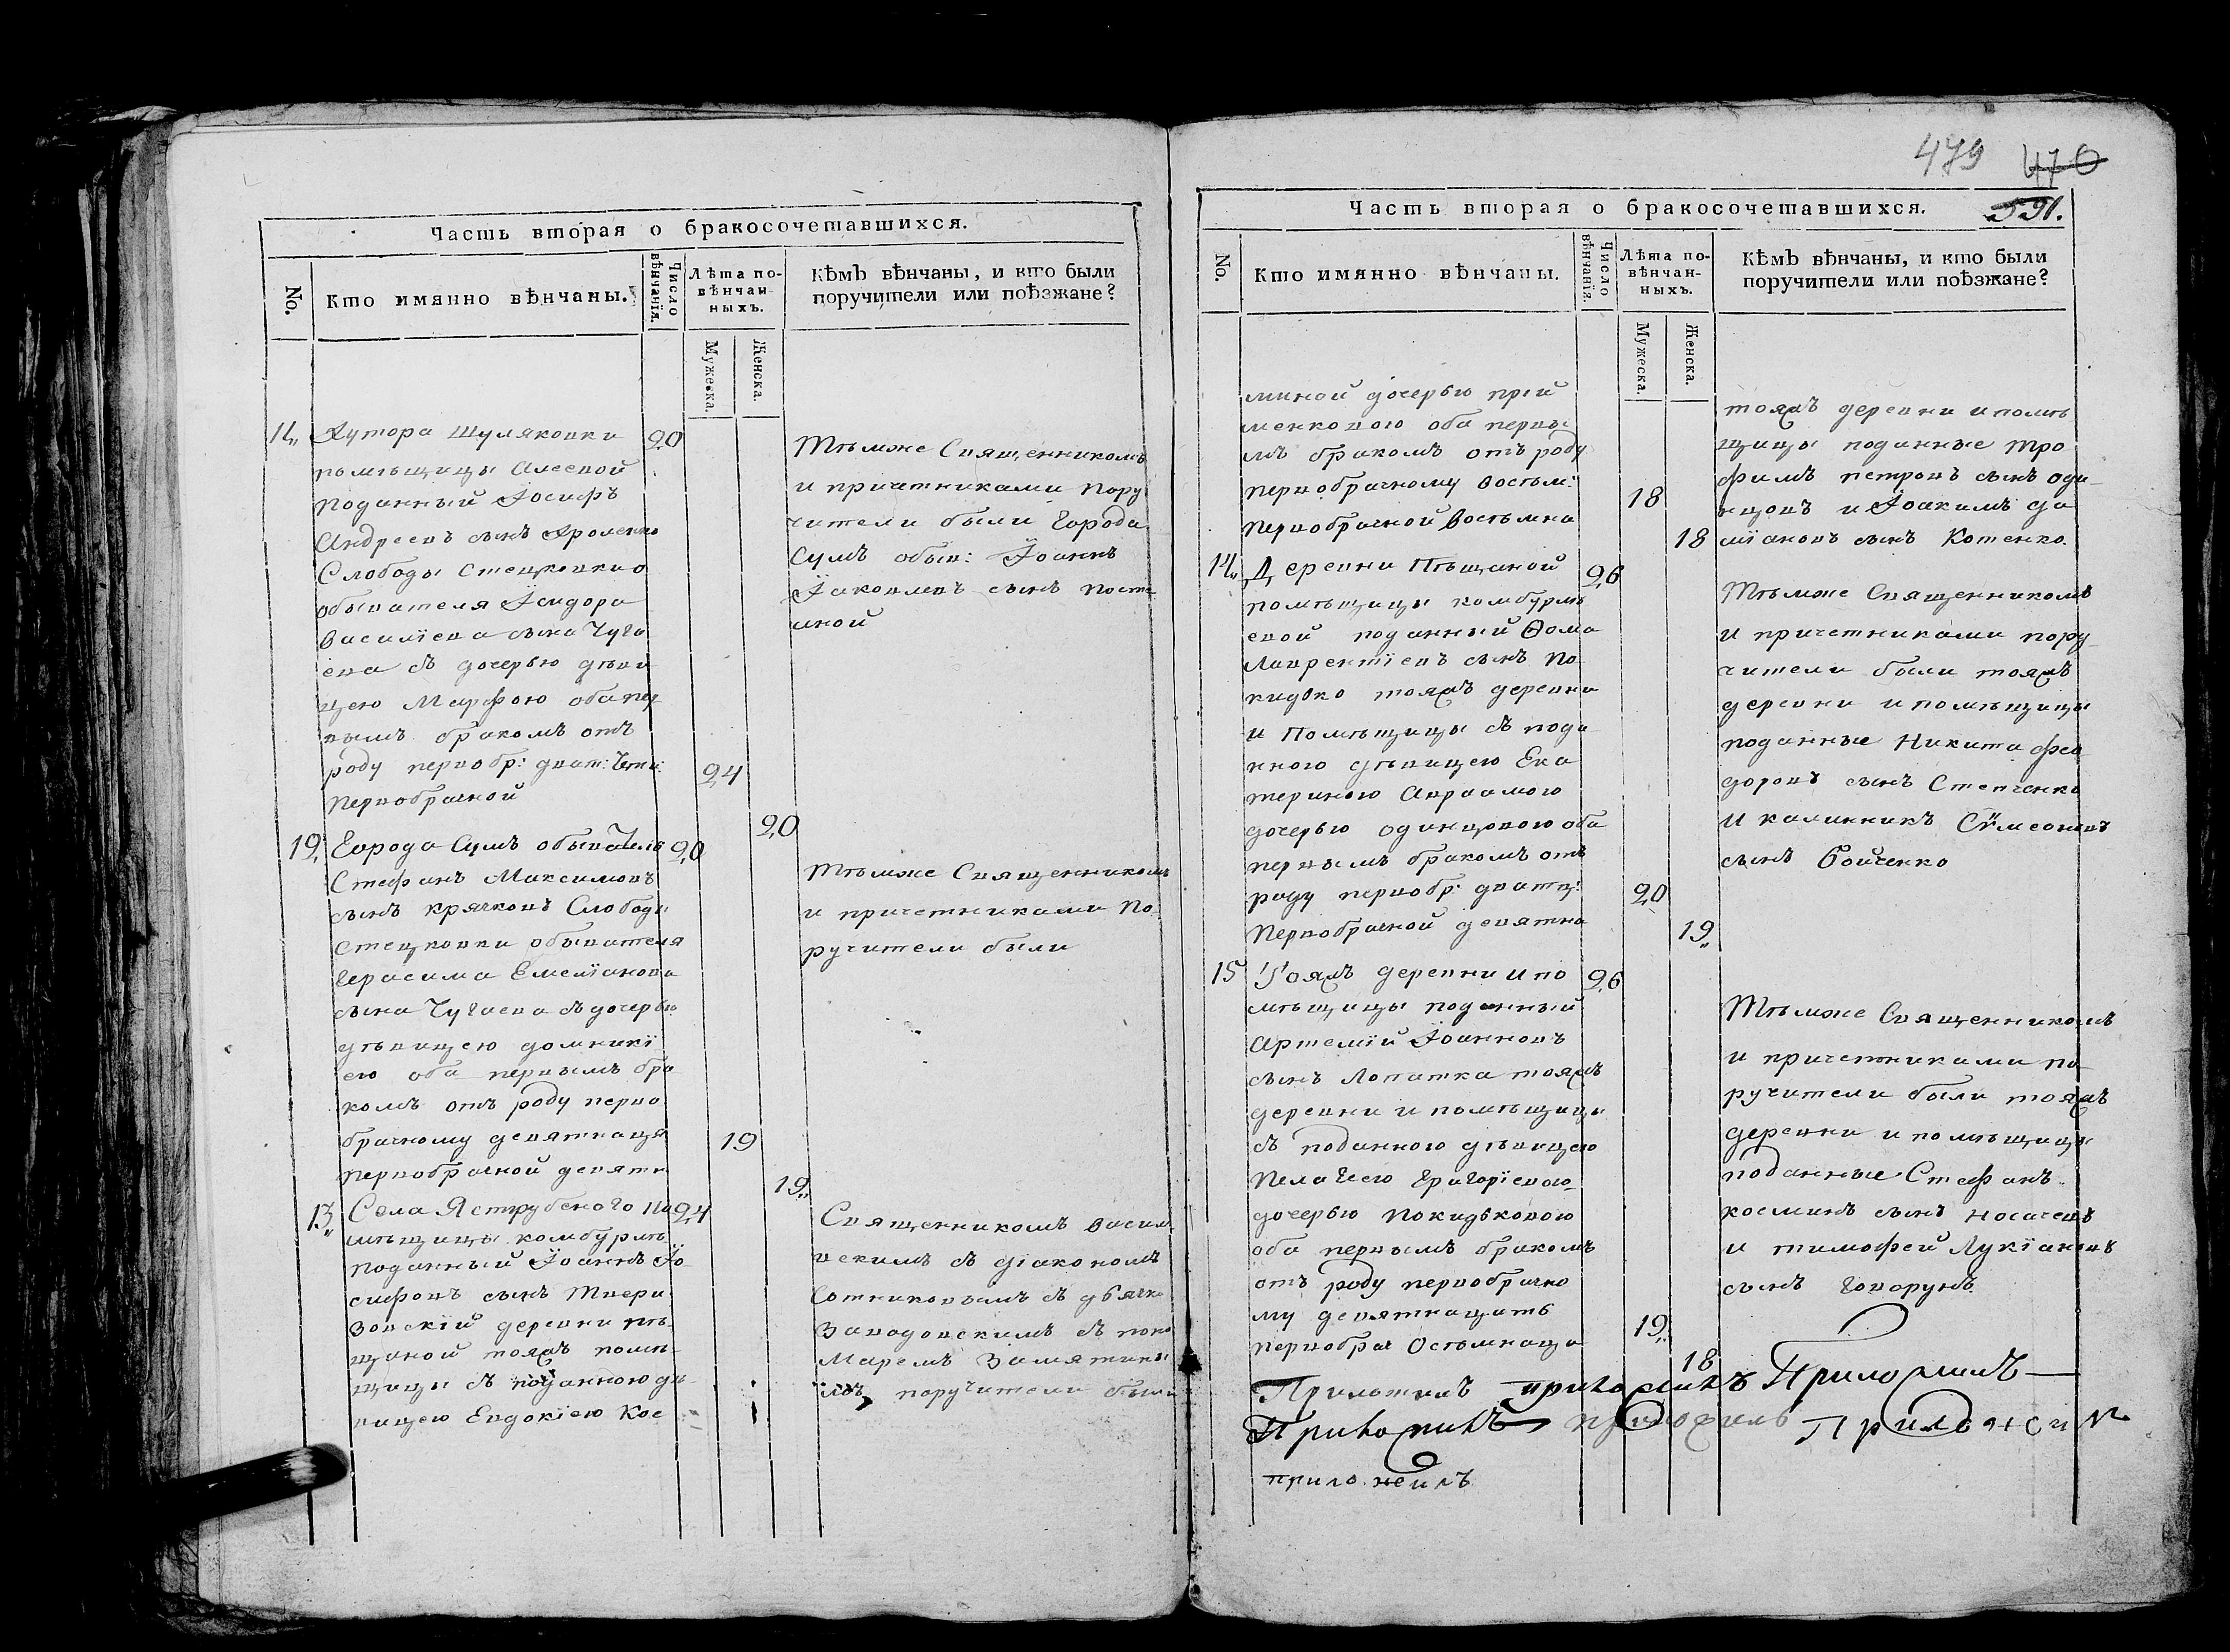 Часть вторая о бракосочетавшихся.
No.
Кто имянно вѣнчаны.
Число вѣнчанія.
Лѣта по-
вѣнчан-
ныхъ.
Мужеска.
Женска.
Кѣмъ вѣнчаны, и кто были
поручители или поѣзжане?
11,, Хутора Шуляковки 20
помѣщицы
поданный Іосифъ
Андреевъ сынъ
Слободы Стецковки о
обывателя Ісидора
Василіева сына Чуга
ева съ дочерью дѣви
цею Марфою оба пер
вымъ бракомъ отъ
роду первобр: дват: четы: 24
первобрачной 20
Тѣмже Священникомъ
и причетниками пору
чители были Города
Сумъ обыв: Іоаннъ
Іаковлевъ сынъ
12, Города Сумъ обыватель 20
Стефанъ Максимовъ
сынъ Крячковъ Слободы
Стецковки обывателя
Герасима Емеліанова
сына Чугаева съ дочерью
дѣвицею домникі
ею оба первымъ бра
комъ отъ роду перво
брачному девятнаця 19
первобрачной девятн 19,,
Тѣмже Священникомъ
и причетниками По
ручители были
13,, Села Яструбеного По 24
мѣщицы комбурлѣ
поданный Іоаннъ Іо
сифовъ сынъ Твери
зовскій деревни пѣ
щаной тояжъ помѣ
щицы съ поданною дѣ
вицею Евдокіею Кос
Священникомъ Васил
съ діакономъ
Сотниковымъ съ дьячко
Заводовскимъ съ поно
маремъ Замятины
мъ, поручители были
479 470
591.
Часть вторая о бракосочетавшихся.
No.
Кто имянно вѣнчаны.
Число вѣнчанія.
Лѣта по-
вѣнчан-
ныхъ.
Мужеска.
Женска.
Кѣмъ вѣнчаны, и кто были
поручители или поѣзжане?
миной дочерью прій
менковою оба первы
мъ бракомъ отъ роду
первобрачному восѣм: 18
первобрачной восѣмна 18
тояжъ деревни и помѣ
щицы поданные Тро
фимъ петровъ сынъ оди
нцовъ и Іоакимъ да
міановъ сынъ Котенко.
14,, Деревни Пѣщаной 26
помѣщицы комбурлѣ
евой поданный Ѳома
Лаврентіевъ сынъ По
кидько тояжъ деревни
и Помѣщицы съ пода
нною дѣвицею Ека
териною Авраамою
дочерью одинцовою оба
первымъ бракомъ отъ
роду первобр: дватц: 20
Первобрачной девятна 19,,
Тѣмже Священникомъ
и причетниками пору
чители были тояжъ
деревни и помѣщицы
поданные Никита Фео
доровъ сынъ Степченко
и калинникъ Сѵмеоновъ
сынъ Бойченко
15 Тояжъ деревни и по 26
мѣщицы поданный
Артемій Іоанновъ
сынъ Лопатка тояжъ
деревни и помѣщицы
съ поданною дѣвицею
Пелагіею Григоріевою
дочерью Покидьковою
оба первымъ бракомъ
отъ роду первобрачно
му девятнацать 19,,
первобрач осѣмнаца 18
Тѣмже Священникомъ
и причетниками по
ручители были тояжъ
деревни и помѣщицы
поданные Стефанъ
косминъ сынъ Носачевъ
и тимофей Лукіановъ
сынъ Говорунъ
Приложилъ приложилъ Приложилъ
Приложилъ приложилъ Приложил
приложилъ